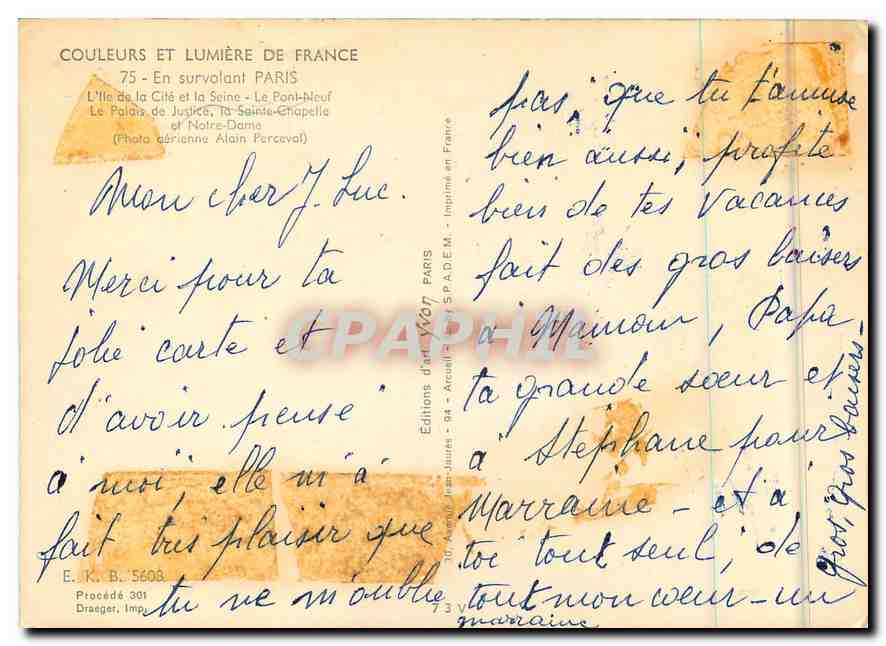 COULEURS ET LUMIÈRE DE FRANCE
75 - En survolant PARIS
L'Ile de la Cité et la Seine - Le Pont-Neuf
Le Palais de Justice, la Sainte-Chapelle
et Notre-Dame
(Photo aérienne Alain Perceval)
Mon cher J. Luc.
Merci pour ta
jolie carte et
d'avoir pensé
à moi, elle m'a
fait très plaisir que
tu ne m'oublie
E. K. B. 5608
Procédé 301
Draeger, Imp.
Editions d'art Yvon PARIS
10, Avenue Jean-Jaurès - 94 - Arcueil - S.P.A.D.E.M. - Imprimé en France
73 V
pas, que tu t'amuse
bien aussi, profite
bien de tes vacances
fait des gros baisers
à Maman, Papa
ta grande sœur et
à Stéphane pour
Marraine - et à
toi tout seul, de
tout mon cœur - un
marraine
gros, gros baisers -
CPAPHIL